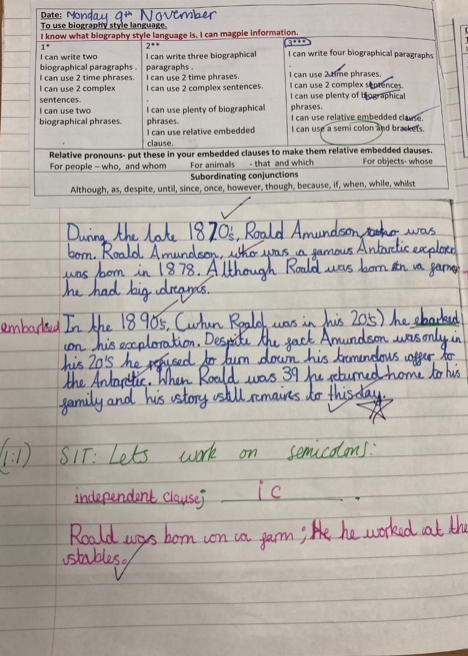 Date: Monday 9th November
To use biography style language.
I know what biography style language is. I can magpie information.
1*
I can write two biographical paragraphs .
I can use 2 time phrases.
I can use 2 complex sentences.
I can use two biographical phrases.
2**
I can write three biographical paragraphs .
I can use 2 time phrases.
I can use 2 complex sentences.
.
I can use plenty of biographical phrases.
I can use relative embedded clause.
3***
I can write four biographical paragraphs
I can use 2 time phrases.
I can use 2 complex sentences.
I can use plenty of biographical phrases.
I can use relative embedded clause.
I can use a semi colon and brackets.
Relative pronouns- put these in your embedded clauses to make them relative embedded clauses.
For people – who, and whom For animals - that and which For objects- whose
Subordinating conjunctions
Although, as, despite, until, since, once, however, though, because, if, when, while, whilst
During the late 1870's, Roald Amundson, who was
born. Roald Amundson, who was a famous Antarctic explorer
was born in 1878. Although Roald was born on a farm,
he had big dreams.
embarked In the 1890's, (when Roald was in his 20's) he ebarked
on his exploration. Despite the fact Amundson was only in
his 20's he refused to turn down his tremendous offer to
the Antartic. When Roald was 39 he returned home to his
family and his story still remaires to this day.
(1:1) SIT: Lets work on semicolons:
independent clause; i c .
Roald was born on a farm; He he worked at the
stables.